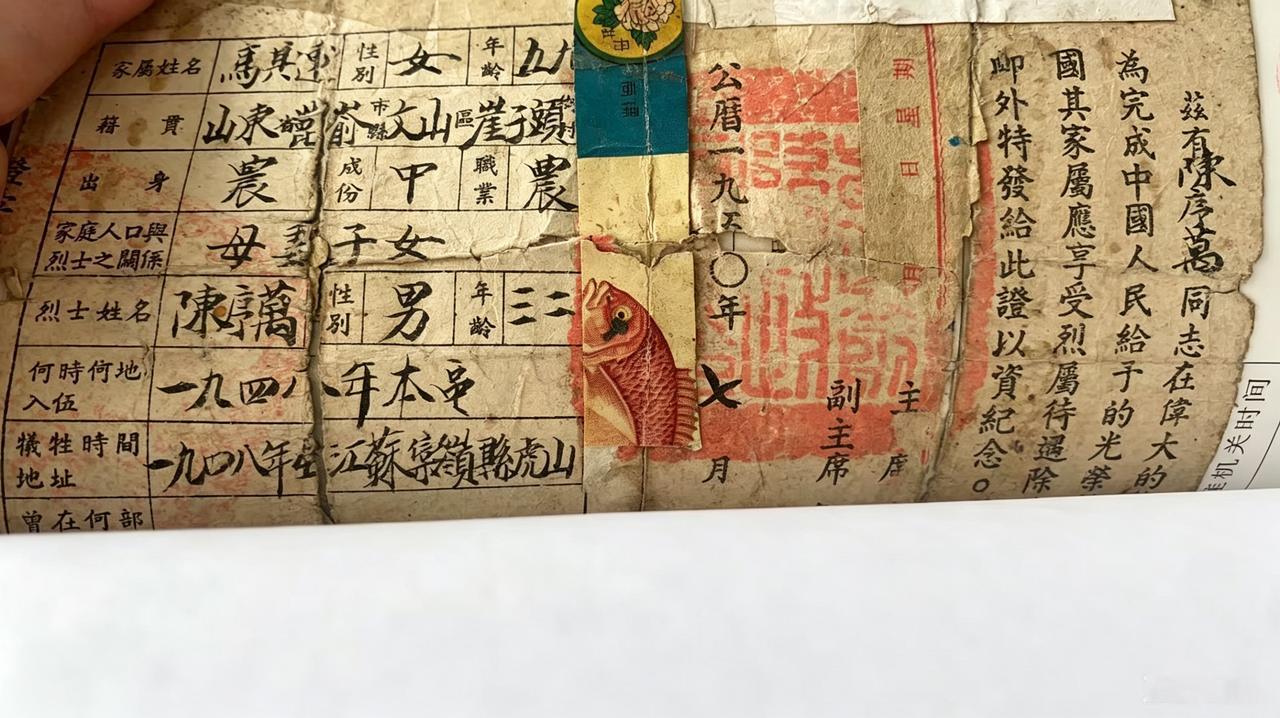 家屬姓名 馬其連 性別 女 年齡 五九
籍貫 山東 崑嵛 市縣 文山 區 崖子頭 村
出身 農 成份 中 職業 農
家庭人口與烈士之關係 母 妻 子 女
烈士姓名 陳序萬 性別 男 年齡 三二
何時何地入伍 一九四八年本邑
犧牲時間地址 一九四八年 江蘇 縣虎山
曾在何部
茲有陳序萬同志在偉大的
為完成中國人民給于的光榮
國其家屬應享受烈屬待遇除
卹外特發給此證以資紀念。
主席
副主席
公曆一九五〇年七月
期星日
月
准机关时间